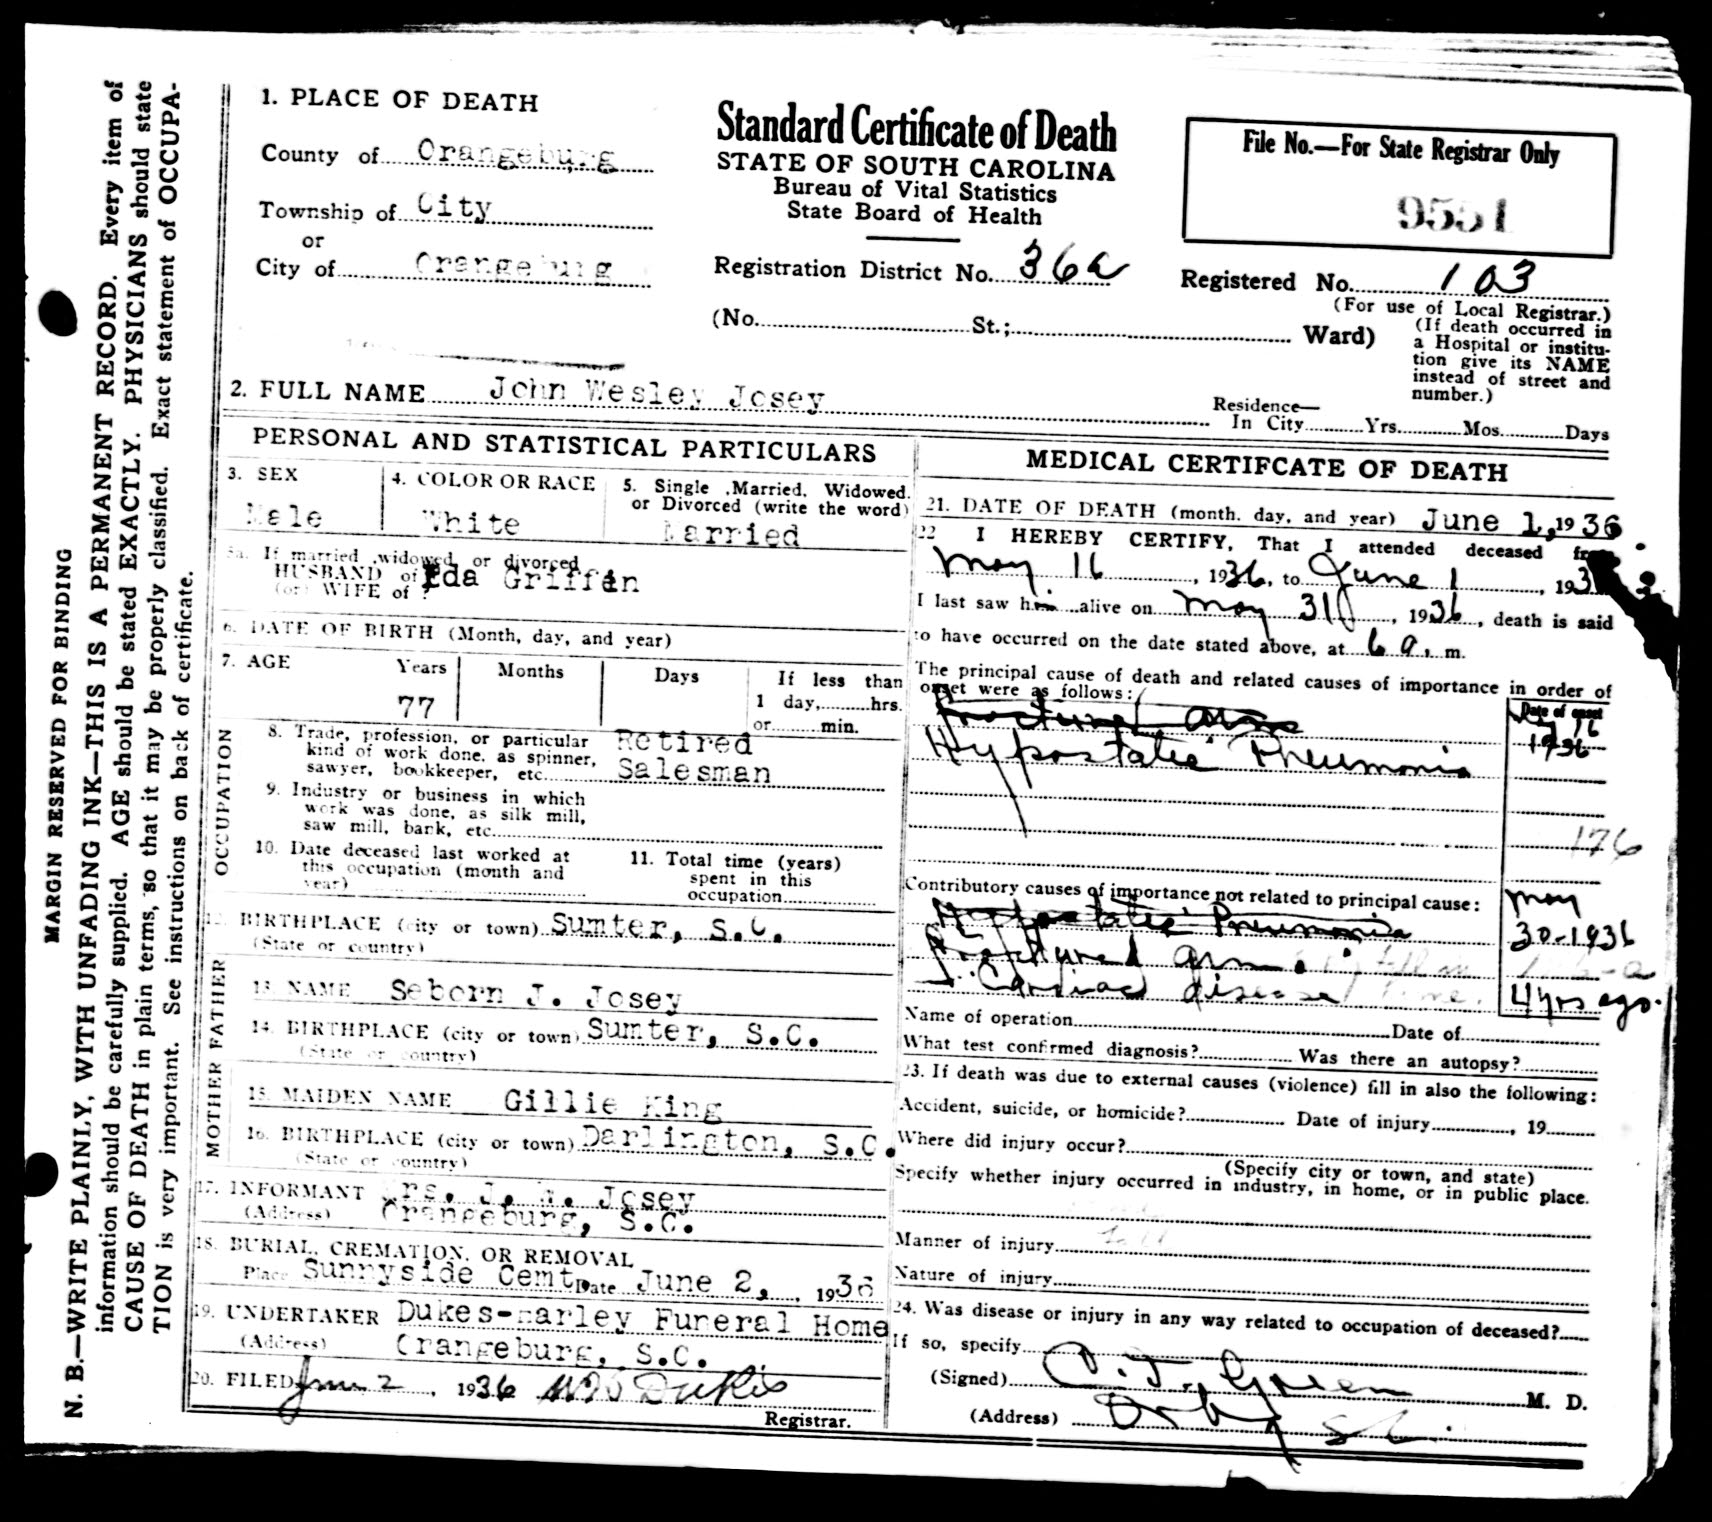 MARGIN RESERVED FOR BINDING
N. B.—WRITE PLAINLY, WITH UNFADING INK—THIS IS A PERMANENT RECORD. Every item of
information should be carefully supplied. AGE should be stated EXACTLY. PHYSICIANS should state
CAUSE OF DEATH in plain terms, so that it may be properly classified. Exact statement of OCCUPA-
TION is very important. See instructions on back of certificate.
1. PLACE OF DEATH
County of Orangeburg
Township of City
or
City of Orangeburg
Standard Certificate of Death
STATE OF SOUTH CAROLINA
Bureau of Vital Statistics
State Board of Health
File No.—For State Registrar Only
9551
Registration District No. 36a
Registered No. 103
(For use of Local Registrar.)
(No. St.; Ward)
(If death occurred in
a Hospital or institu-
tion give its NAME
instead of street and
number.)
2. FULL NAME John Wesley Josey
Residence—
In City Yrs. Mos. Days
PERSONAL AND STATISTICAL PARTICULARS
3. SEX
Male
4. COLOR OR RACE
White
5. Single ,Married, Widowed,
or Divorced (write the word)
Married
5a. If married ,widowed, or divorced
HUSBAND of
(or) WIFE of
Eda Griffin
6. DATE OF BIRTH (Month, day, and year)
7. AGE Years Months Days If less than
77 1 day, hrs.
or min.
OCCUPATION
8. Trade, profession, or particular
kind of work done, as spinner,
sawyer, bookkeeper, etc.
Retired
Salesman
9. Industry or business in which
work was done, as silk mill,
saw mill, bank, etc.
10. Date deceased last worked at
this occupation (month and
year)
11. Total time (years)
spent in this
occupation
12. BIRTHPLACE (city or town) Sumter, S.C.
(State or country)
FATHER
13. NAME Seborn J. Josey
14. BIRTHPLACE (city or town) Sumter, S.C.
(State or country)
MOTHER
15. MAIDEN NAME Gillie King
16. BIRTHPLACE (city or town) Darlington, S.C.
(State or country)
17. INFORMANT Mrs. J. W. Josey
(Address) Orangeburg, S.C.
18. BURIAL, CREMATION, OR REMOVAL
Place Sunnyside Cemt. Date June 2, , 1936
19. UNDERTAKER Dukes-Harley Funeral Home
(Address) Orangeburg, S.C.
20. FILED June 2 , 1936 Dukes
Registrar.
MEDICAL CERTIFCATE OF DEATH
21. DATE OF DEATH (month, day, and year) June 1, 1936
22 I HEREBY CERTIFY, That I attended deceased from
May 16 , 1936, to June 1 , 193
I last saw him alive on May 31 , 1936 , death is said
to have occurred on the date stated above, at 6 a. m.
The principal cause of death and related causes of importance in order of
onset were as follows:
Date of onset
Fractured arm
16
1936
Hypostatic Pneumonia
176
Contributory causes of importance not related to principal cause:
Hypostatic Pneumonia
May
30-1936
Fractured arm
Cardiac disease
4 yrs ago.
Name of operation Date of
What test confirmed diagnosis? Was there an autopsy?
23. If death was due to external causes (violence) fill in also the following:
Accident, suicide, or homicide? Date of injury , 19
Where did injury occur?
(Specify city or town, and state)
Specify whether injury occurred in industry, in home, or in public place.
Manner of injury fall
Nature of injury
24. Was disease or injury in any way related to occupation of deceased?
If so, specify
(Signed) C. T. Green M. D.
(Address) Orbg S.C.